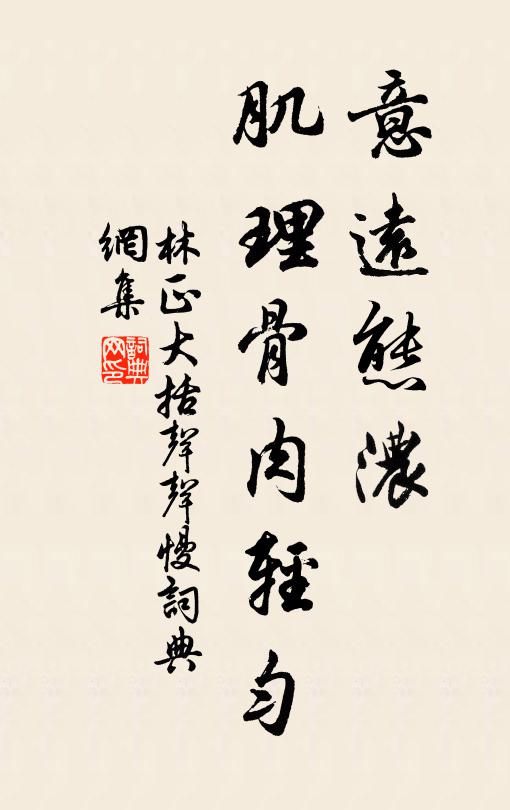 意遠態濃
肌理骨肉輕勻
林正大括聲聲慢詞典
網集
詞典網印